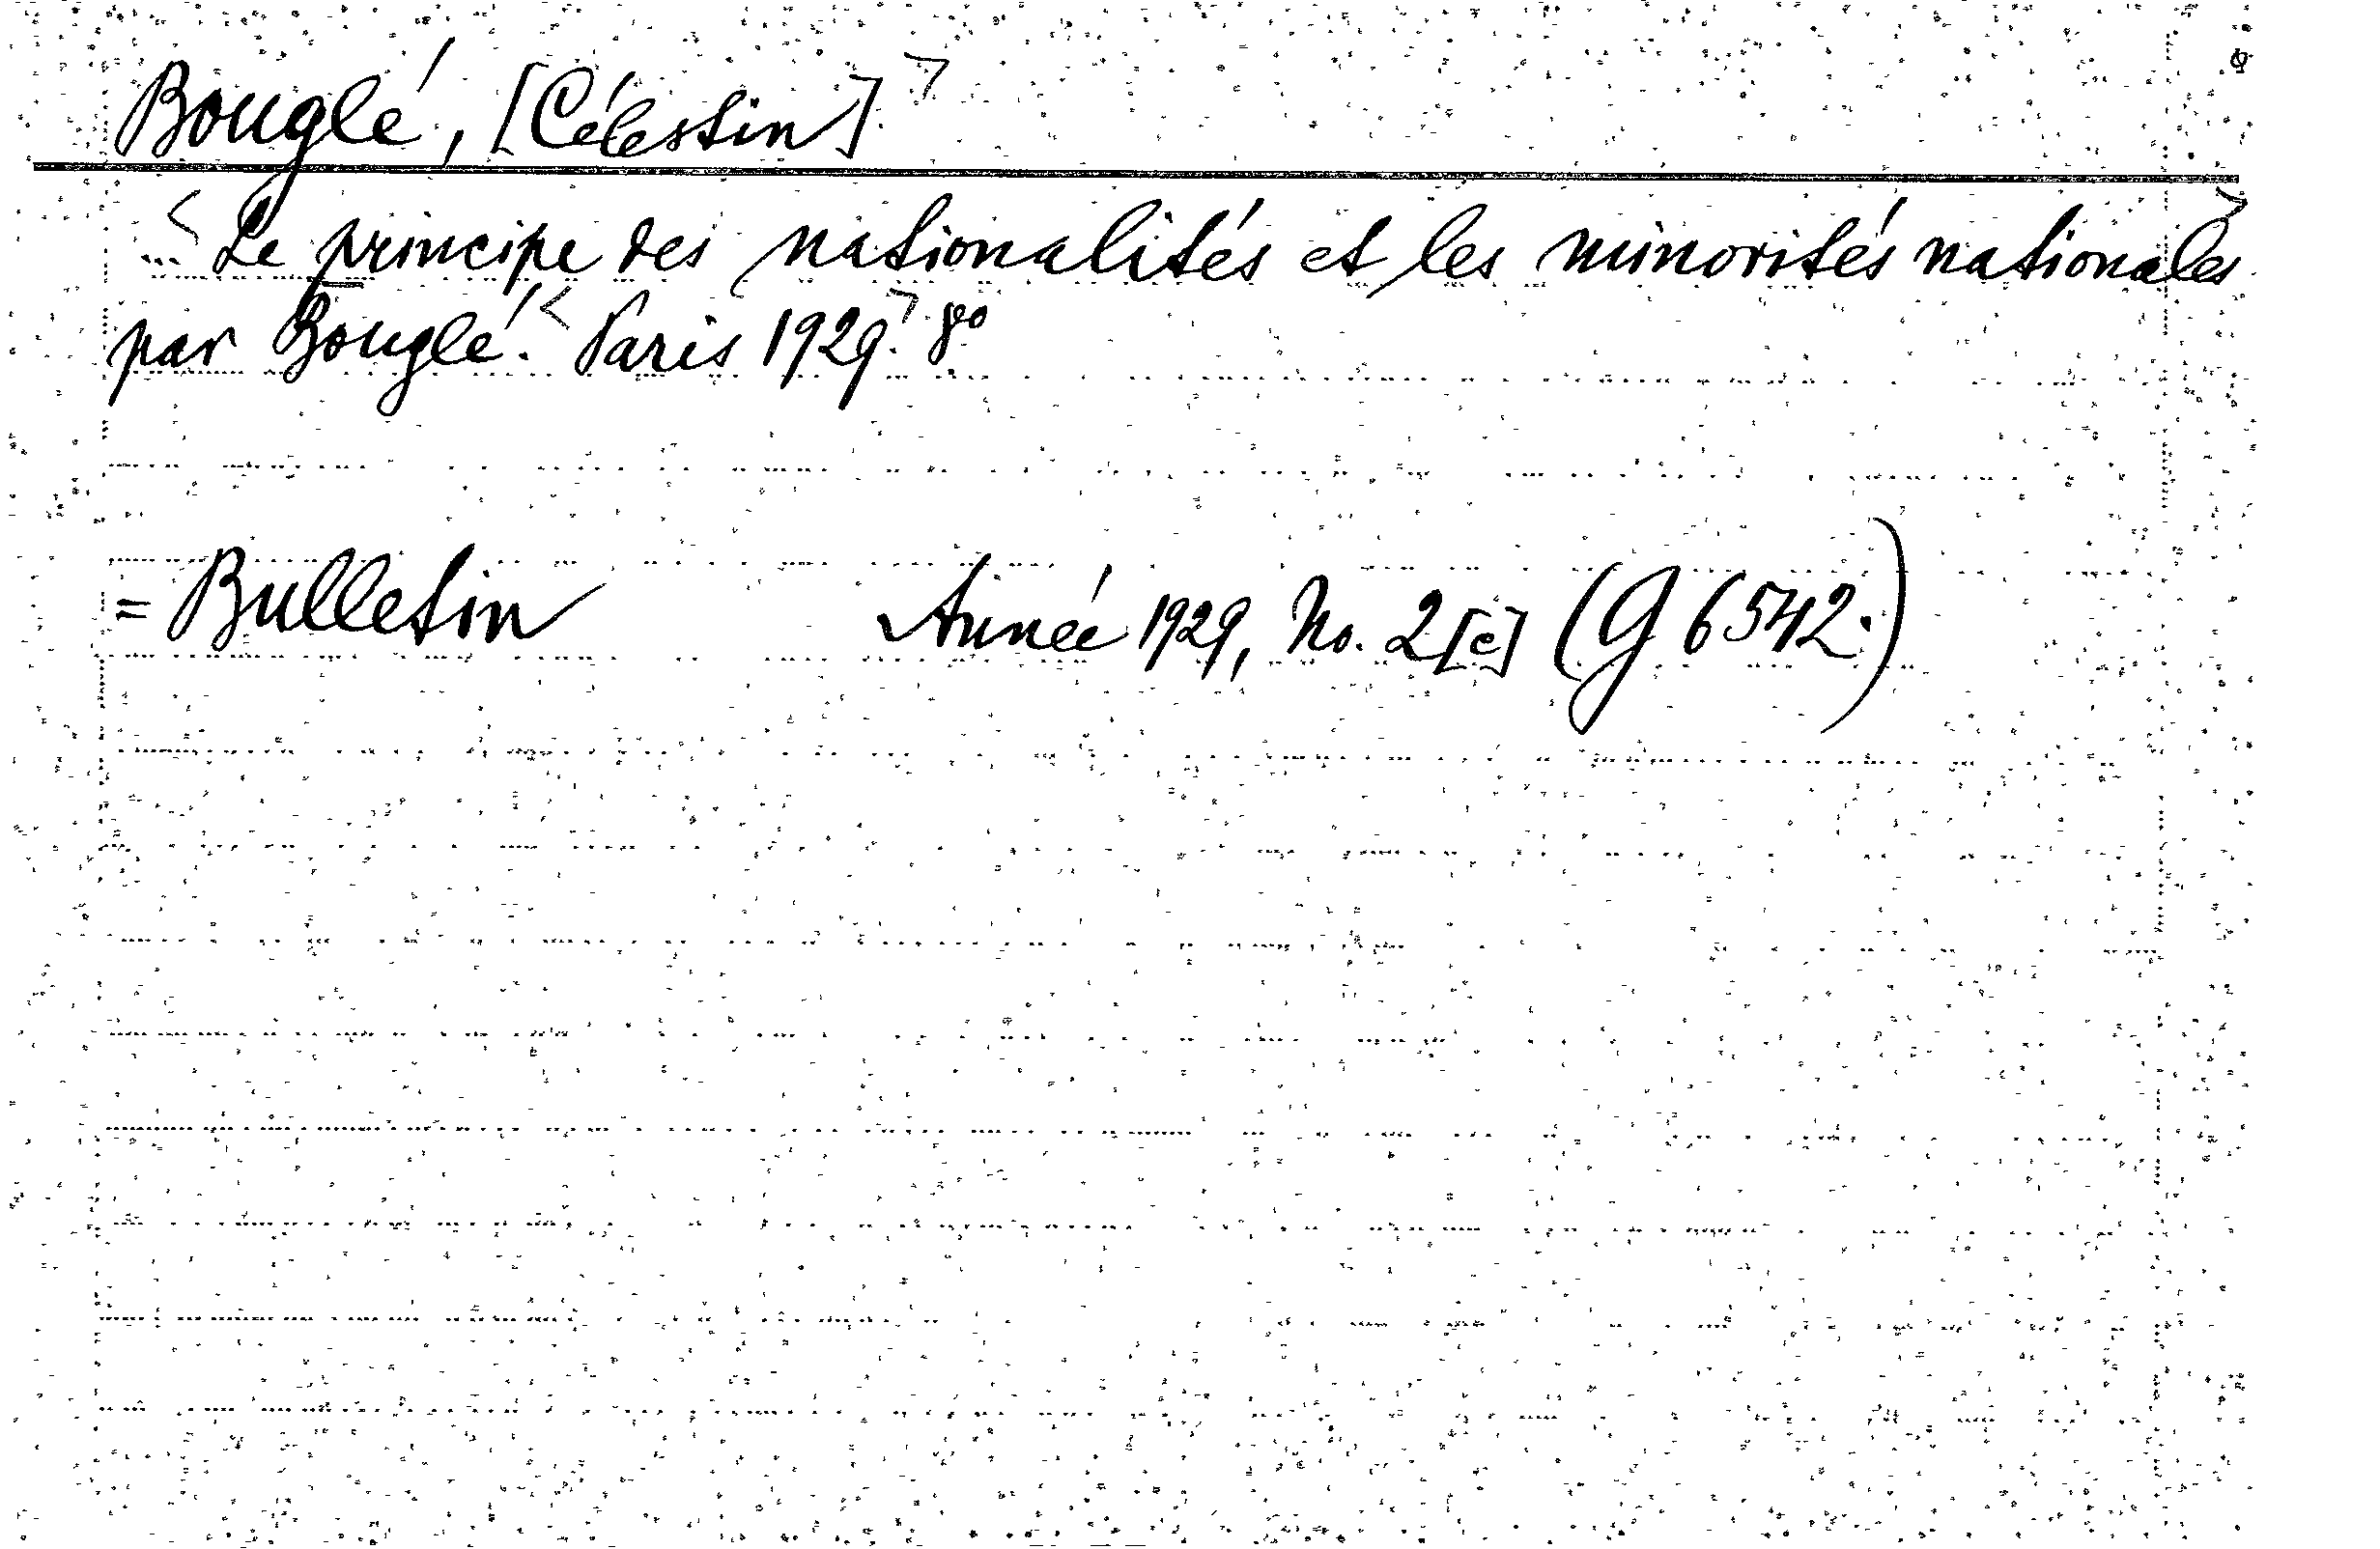 Bouglé, [Célestin]
... Le principe des nationalités et les minorités nationales
par Bouglé. Paris 1929. 8o
= Bulletin Année 1929, No. 2[c] (G 6542.)